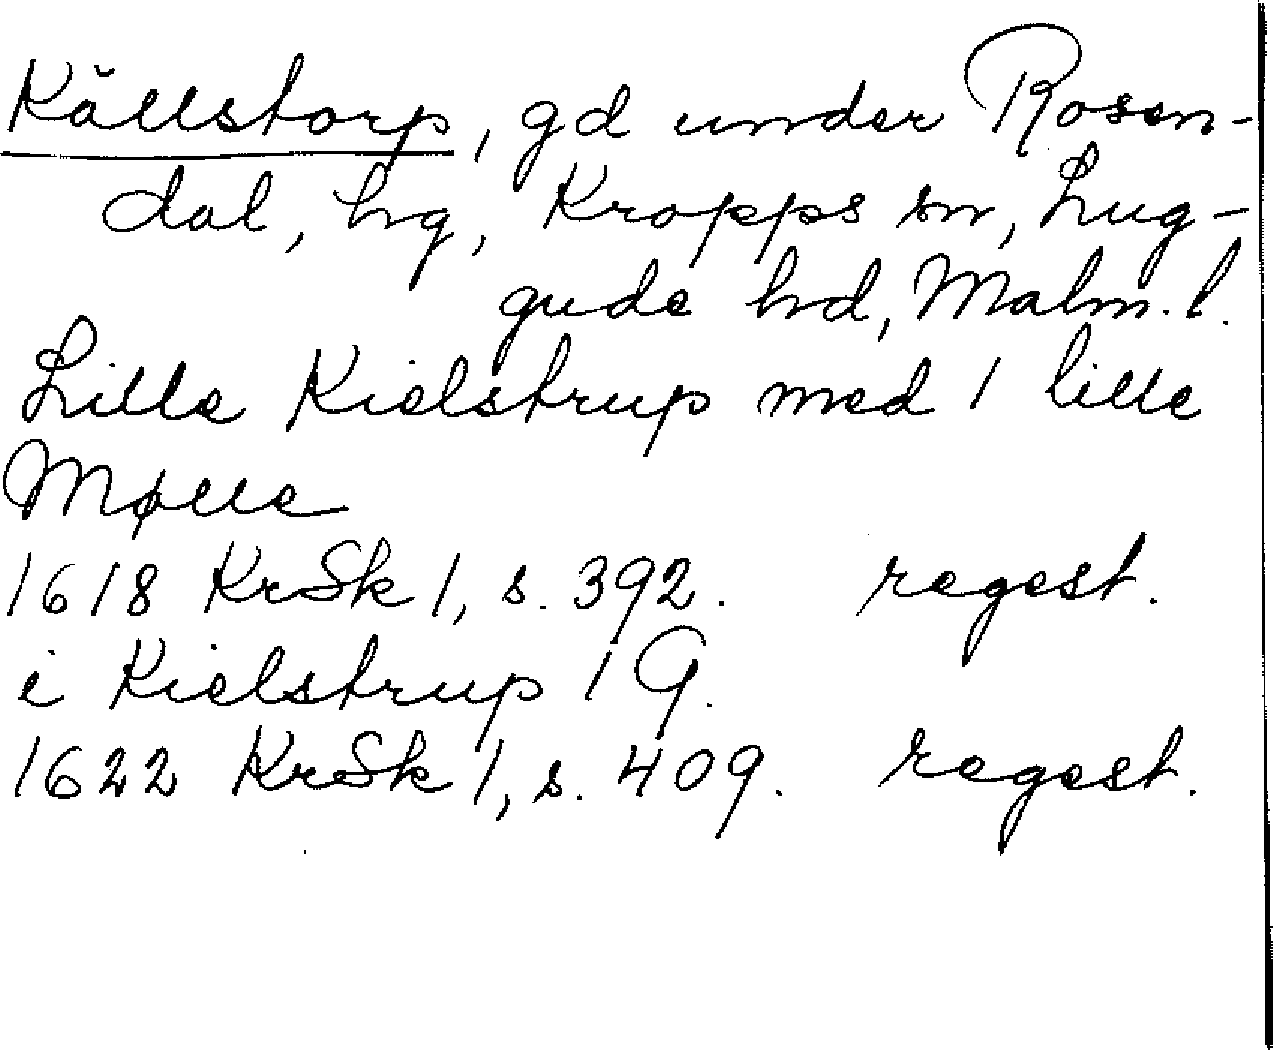 Källstorp, gd under Rosen-
dal, hg, Kropps sn, Lug-
gude hd, Malm. l.
Lille Kielstrup med 1 lille
Mølle
1618 KrSk 1, s. 392. regest.
i Kielstrup 1 G.
1622 KrSk 1, s. 409. regest.